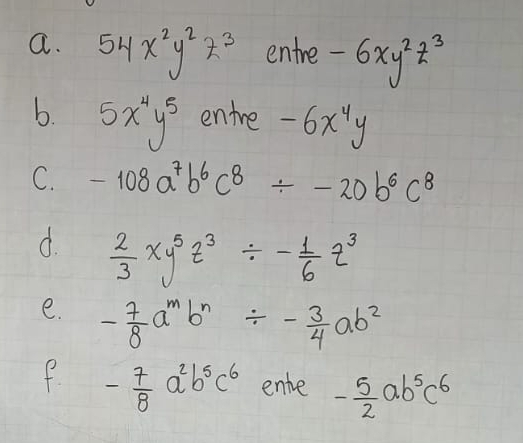 a. 54x²y²z³ entre - 6xy²z³
b. 5x⁴y⁵ entre - 6x⁴y
C. - 108a⁷b⁶c⁸ ÷ - 20b⁶c⁸
d. 2/3 xy⁵z³ ÷ - 1/6 z³
e. - 7/8 aᵐbⁿ ÷ - 3/4 ab²
f. - 7/8 a²b⁵c⁶ entre - 5/2 ab⁵c⁶